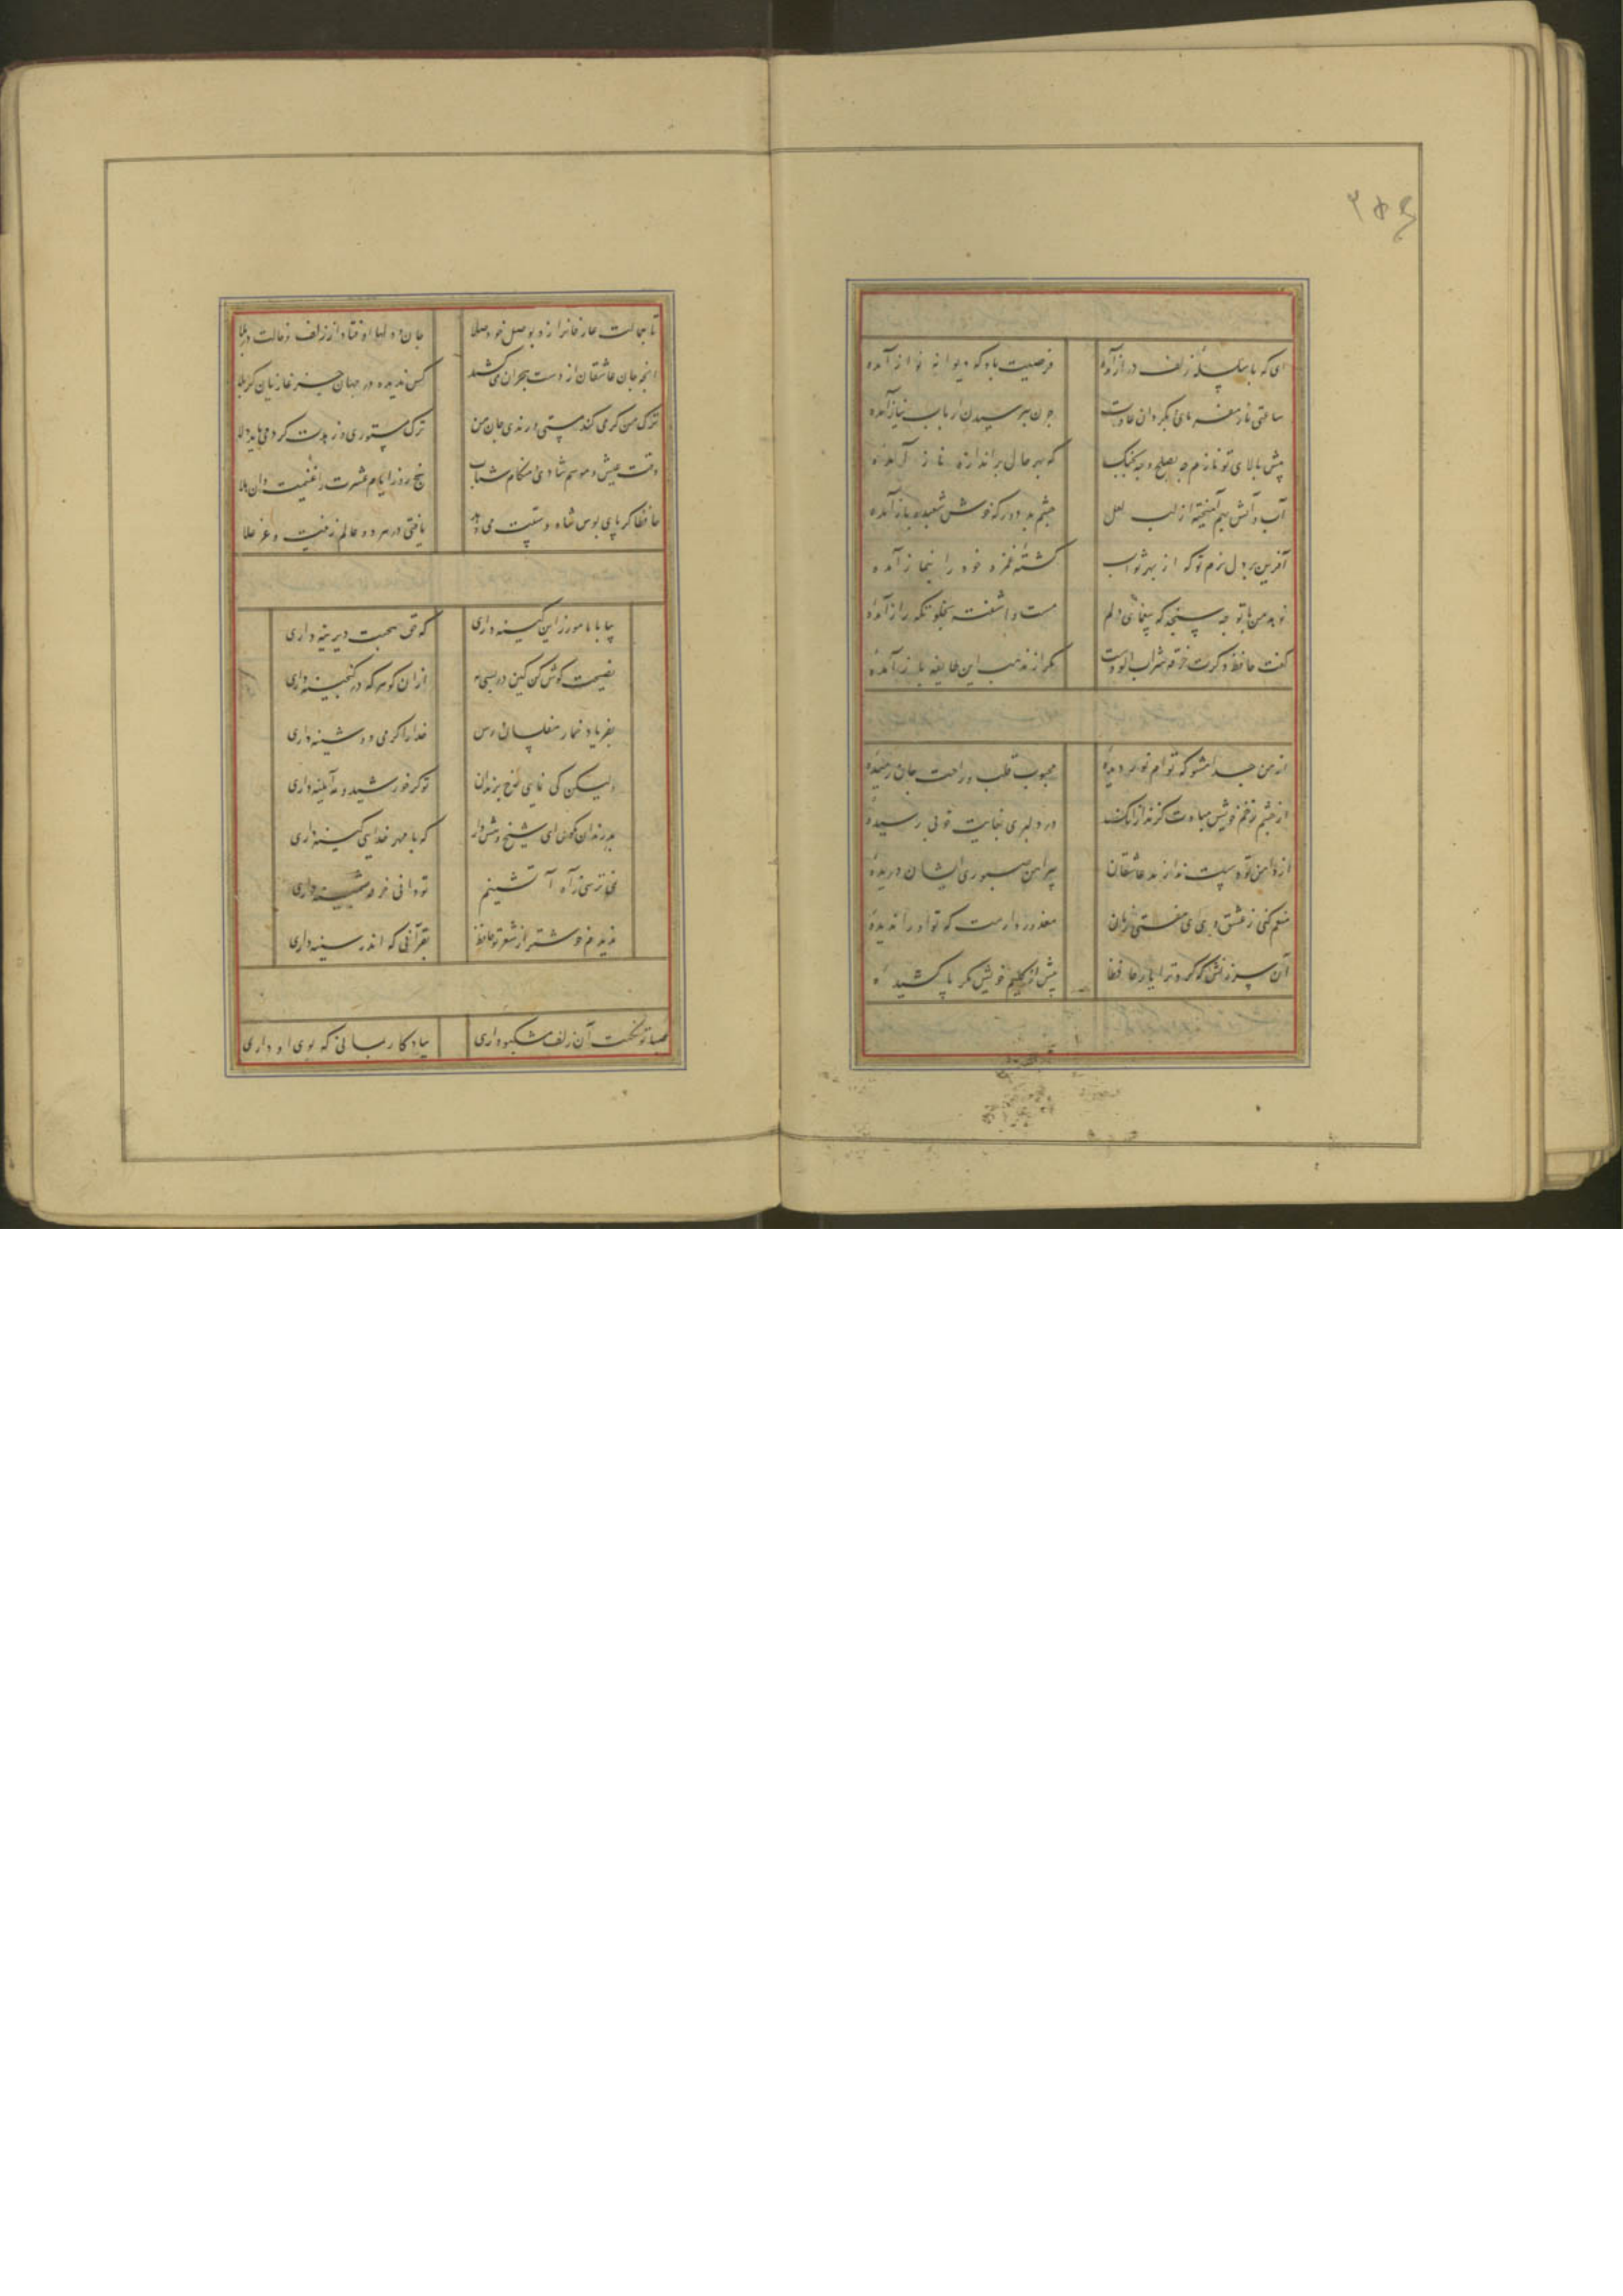 ای که با سلسلهٔ زلف دراز آمدهٔ
فرصتت باد که دیوانه نواز آمدهٔ
ساعتی ناز مفرمای بگردان عادت
چون بپرسیدن ارباب نیاز آمدهٔ
پیش بالای تو نازم چه بصلح و چه بجنگ
که بهر حال برازنده ناز آمدهٔ
آب و آتش بهم آمیختهٔ از لب لعل
چشم بد دور که خوش شعبده باز آمدهٔ
آفرین بر دل نرم تو که از بهر ثواب
کشتهٔ غمزه خود را بنماز آمدهٔ
زهد من با تو چه سنجد که بیغمای دلم
مست و آشفته بخلوتگه راز آمدهٔ
گفت حافظ دگرت خرقه شراب آلودست
مگر از مذهب این طایفه باز آمدهٔ
از من جدا مشو که توام نور دیدهٔ
محبوب قلب و راحت جان رمیدهٔ
از چشم زخم خویش مبادت گزند از آنک
در دلبری بغایت خوبی رسیدهٔ
از دامن تو دست ندارند عاشقان
پیراهن صبوری ایشان دریدهٔ
منعم کنی ز عشق وی ای مفتی زمان
معذور دارمت که تو او را ندیدهٔ
آن سرزنش که کرد ترا یار حافظا
بیش از گلیم خویش مگر پا کشیدهٔ
تا جمالت عاشقانرا زد بوصل خود صلا
جان و دلها اوفتاد از زلف و خالت در بلا
آنچه جان عاشقان از دست هجران می کشد
کس ندیده در جهان جز غازیان کربلا
ترک من گر می کند مستی و رندی جان من
ترک مستوری و زهدت کرد می باید دلا
وقت عیش و موسم شادی و هنگام شباب
پنج روز ایام عشرت را غنیمت دان هلا
حافظا گر پای بوس شاه دستت می دهد
یافتی در هر دو عالم زینت و عز علا
بیا با ما مورز این کینه داری
که حق صحبت دیرینه داری
نصیحت گوش کن کین در بسی به
از آن گوهر که در گنجینه داری
بفریاد خمار مفلسان رس
خدا را گر می دوشینه داری
ولیکن کی نمایی رخ برندان
تو کز خورشید و مه آیینه داری
بد رندان مگوی ای شیخ و هش دار
که با مهر خدایی کینه داری
نمی ترسی ز آه آتشینم
تو دانی خرقه پشمینه داری
ندیدم خوشتر از شعر تو حافظ
بقرآنی که اندر سینه داری
صبا تو نکهت آن زلف مشکبو داری
بیادگار بمانی که بوی او داری